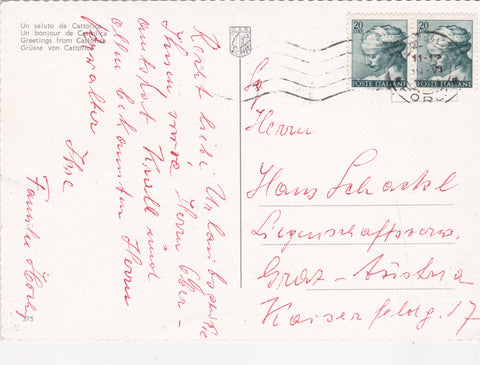 Un saluto da Cattolica
Un bonjour de Cattolica
Greetings from Cattolica
Grüsse von Cattolica
Recht liebe Urlaubsgrüße
Ihnen sowie Herrn Ober-
amtsrat Knell und
allen bekannten Herrn
Verwalter
Ihre
Familie
375
20
LIRE
POSTE ITALIANE
20
LIRE
POSTE ITALIANE
Herrn
Hans Schackl
Liegenschaftsverw.
Graz - Austria
Kaiserfeldg. 17